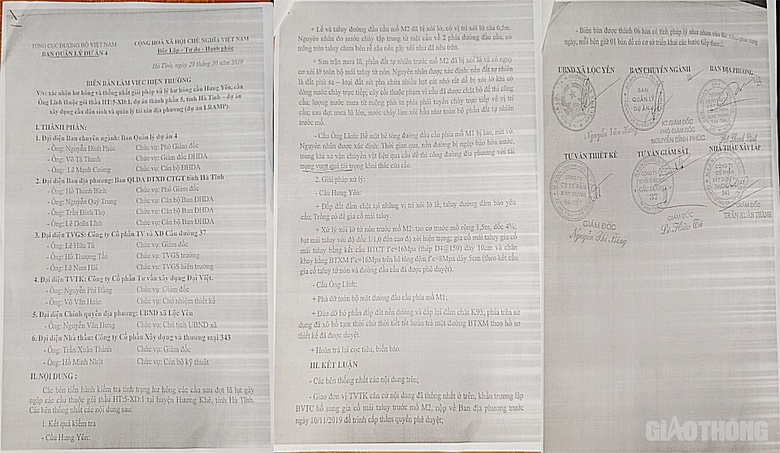 TỔNG CỤC ĐƯỜNG BỘ VIỆT NAM
BAN QUẢN LÝ DỰ ÁN 4
CỘNG HOÀ XÃ HỘI CHỦ NGHĨA VIỆT NAM
Độc Lập - Tự do - Hạnh phúc
Hà Tĩnh, ngày 29 tháng 10 năm 2019
BIÊN BẢN LÀM VIỆC HIỆN TRƯỜNG
V/v: xác nhận hư hỏng và thống nhất giải pháp xử lý hư hỏng cầu Hưng Yên, cầu
Ông Lĩnh thuộc gói thầu HT:5-XD:1, dự án thành phần 5, tỉnh Hà Tĩnh – dự án
xây dựng cầu dân sinh và quản lý tài sản địa phương (dự án LRAMP).
I. THÀNH PHẦN:
1. Đại diện Ban chuyên ngành: Ban Quản lý dự án 4
- Ông: Nguyễn Đình Phúc Chức vụ: Phó Giám đốc
- Ông: Võ Tá Thanh Chức vụ: Giám đốc ĐHDA
- Ông: Lê Mạnh Cường Chức vụ: Giám đốc ĐHDA
2. Đại diện Ban địa phương: Ban QLDA ĐTXD CTGT tỉnh Hà Tĩnh
- Ông: Hồ Thanh Bình Chức vụ: Phó Giám đốc
- Ông: Nguyễn Quý Trung Chức vụ: Cán bộ Ban ĐHDA
- Ông: Trần Đình Thọ Chức vụ: Cán bộ Ban ĐHDA
- Ông: Lê Doãn Lĩnh Chức vụ: Cán bộ Ban ĐHDA
3. Đại diện TVGS: Công ty Cổ phần TV và XD Cầu đường 37
- Ông: Lê Hữu Tú Chức vụ: Giám đốc
- Ông: Hồ Thượng Tấn Chức vụ: TVGS trưởng
- Ông: Lê Nam Hải Chức vụ: TVGS hiện trường
4. Đại diện TVTK: Công ty Cổ phần Tư vấn xây dựng Đại Việt.
- Ông: Nguyễn Phi Bằng Chức vụ: Giám đốc
- Ông: Võ Văn Hoàn Chức vụ: Chủ nhiệm thiết kế
5. Đại diện Chính quyền địa phương: UBND xã Lộc Yên
- Ông: Nguyễn Văn Hưng Chức vụ: Chủ tịch UBND xã
6. Đại diện Nhà thầu: Công ty Cổ phần Xây dựng và thương mại 343
- Ông: Trần Xuân Thành Chức vụ: Giám đốc
- Ông: Hồ Minh Nhật Chức vụ: Cán bộ kỹ thuật
II. NỘI DUNG :
Các bên tiến hành kiểm tra tình trạng hư hỏng các cầu sau đợt lũ lụt gây
ngập các cầu thuộc gói thầu HT:5-XD:1 tại huyện Hương Khê, tỉnh Hà Tĩnh.
Các bên thống nhất các nội dung sau:
1. Kết quả kiểm tra
- Cầu Hưng Yên:
+ Lề và taluy đường đầu cầu mố M2 đã bị xói lở, có vị trí xói lở sâu 0,5m.
Nguyên nhân do nước chảy tập trung từ mặt cầu về 2 phía đường đầu cầu, cỏ
trồng trên taluy chưa bén rễ sâu nên gây xói như đã nêu trên.
+ Sau trận mưa lũ, phần đất tự nhiên trước mố M2 đã bị xói lở và có nguy
cơ xói lở toàn bộ mái taluy tứ nón. Nguyên nhân được xác định: nền đất tự nhiên
là đất pha
nước chảy trực tiếp; cây cối thuộc phạm vi cầu đã được chặt bỏ để thi công
cầu; lượng nước mưa từ ruộng phía
sau đợt mưa lũ lớn, nước chảy làm xói hầu như toàn bộ phần đất tự nhiên
trước mố.
+ Cầu Ông Lĩnh: Bê mặt bê tông đường đầu cầu phía mố M1 bị lún, nứt vỡ.
Nguyên nhân được xác định: Thời gian qua, nền đường bị ngập bão hòa nước,
trong khi xe vận chuyển vật liệu qua cầu để thi công đường địa phương với tải
trọng vượt quá tải trọng khai thác của cầu.
2. Giải pháp xử lý:
- Cầu Hưng Yên:
+ Đắp đất đầm chặt tại những vị trí xói lở lề, taluy đường đảm bảo yêu
cầu; Trồng cỏ để gia cố mái taluy.
+ Xử lý xói lở tứ nón trước mố M2: tạo cơ trước mố rộng 1,5m, dốc 4%;
bạt mái taluy với độ dốc 1/1,0 đến cao độ xói hiện trạng; gia cố mái taluy
taluy bằng kết cấu BTCT f'c=16Mpa (thép D4@150) dày 10cm và chân
khay bằng BTXM f'c=16Mpa trên bê tông đệm f'c=8Mpa dày 5cm (theo kết cấu
gia cố taluy tứ nón và đường đầu cầu đã được phê duyệt).
- Cầu Ông Lĩnh:
+ Phá dỡ toàn bộ mặt đường đầu cầu phía mố M1;
+ Đào dỡ bỏ phần đắp đất nền đường và đắp lại đầm chặt K95, phía trên sử
dụng đá xô bồ tạm thời chờ thời tiết tốt hoàn trả mặt đường BTXM theo hồ sơ
thiết kế đã được duyệt.
+ Hoàn trả lại cọc tiêu, biển báo.
III. KẾT LUẬN
- Các bên thống nhất các nội dung trên;
- Giao đơn vị TVTK căn cứ nội dung đã thống nhất ở trên, khẩn trương lập
BVTC bổ sung gia cố mái taluy trước mố M2, nộp về Ban địa phương trước
ngày 10/11/2019 để trình cấp thẩm quyền phê duyệt;
- Biên bản được thành 06 bản có tính pháp lý như nhau
ngày, mỗi bên giữ 01 bản để có cơ sở triển khai các bước tiếp theo./.
UBND XÃ LỘC YÊN BAN CHUYÊN NGÀNH BAN ĐỊA PHƯƠNG
BAN
QUẢN LÝ
DỰ ÁN
KT.GIÁM ĐỐC
PHÓ GIÁM ĐỐC
NGUYỄN ĐÌNH PHÚC
TƯ VẤN THIẾT KẾ TƯ VẤN GIÁM SÁT NHÀ THẦU XÂY LẮP
GIÁM ĐỐC
Nguyễn Phi Bằng
GIÁM ĐỐC
Lê Hữu Tú
GIÁM ĐỐC
TRẦN XUÂN THÀNH
GIAOTHONG